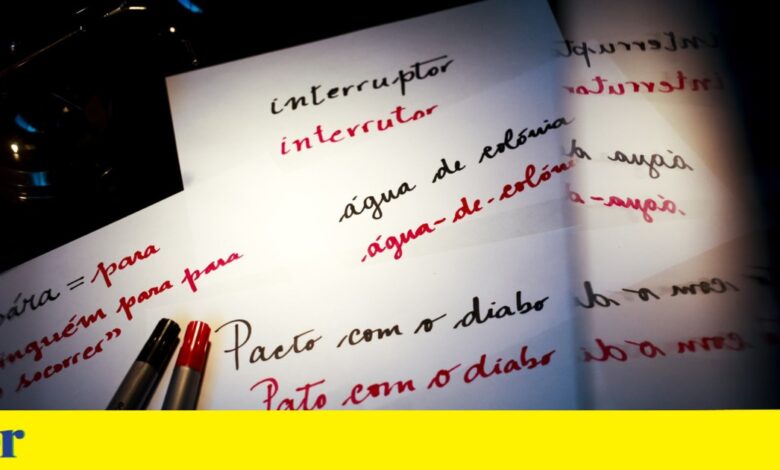 interruptor
interrutor
água de colónia
água-de-colóni
pára = para
inguém para para
socorrer"
Pacto com o diabo
Pato com o diabo
r